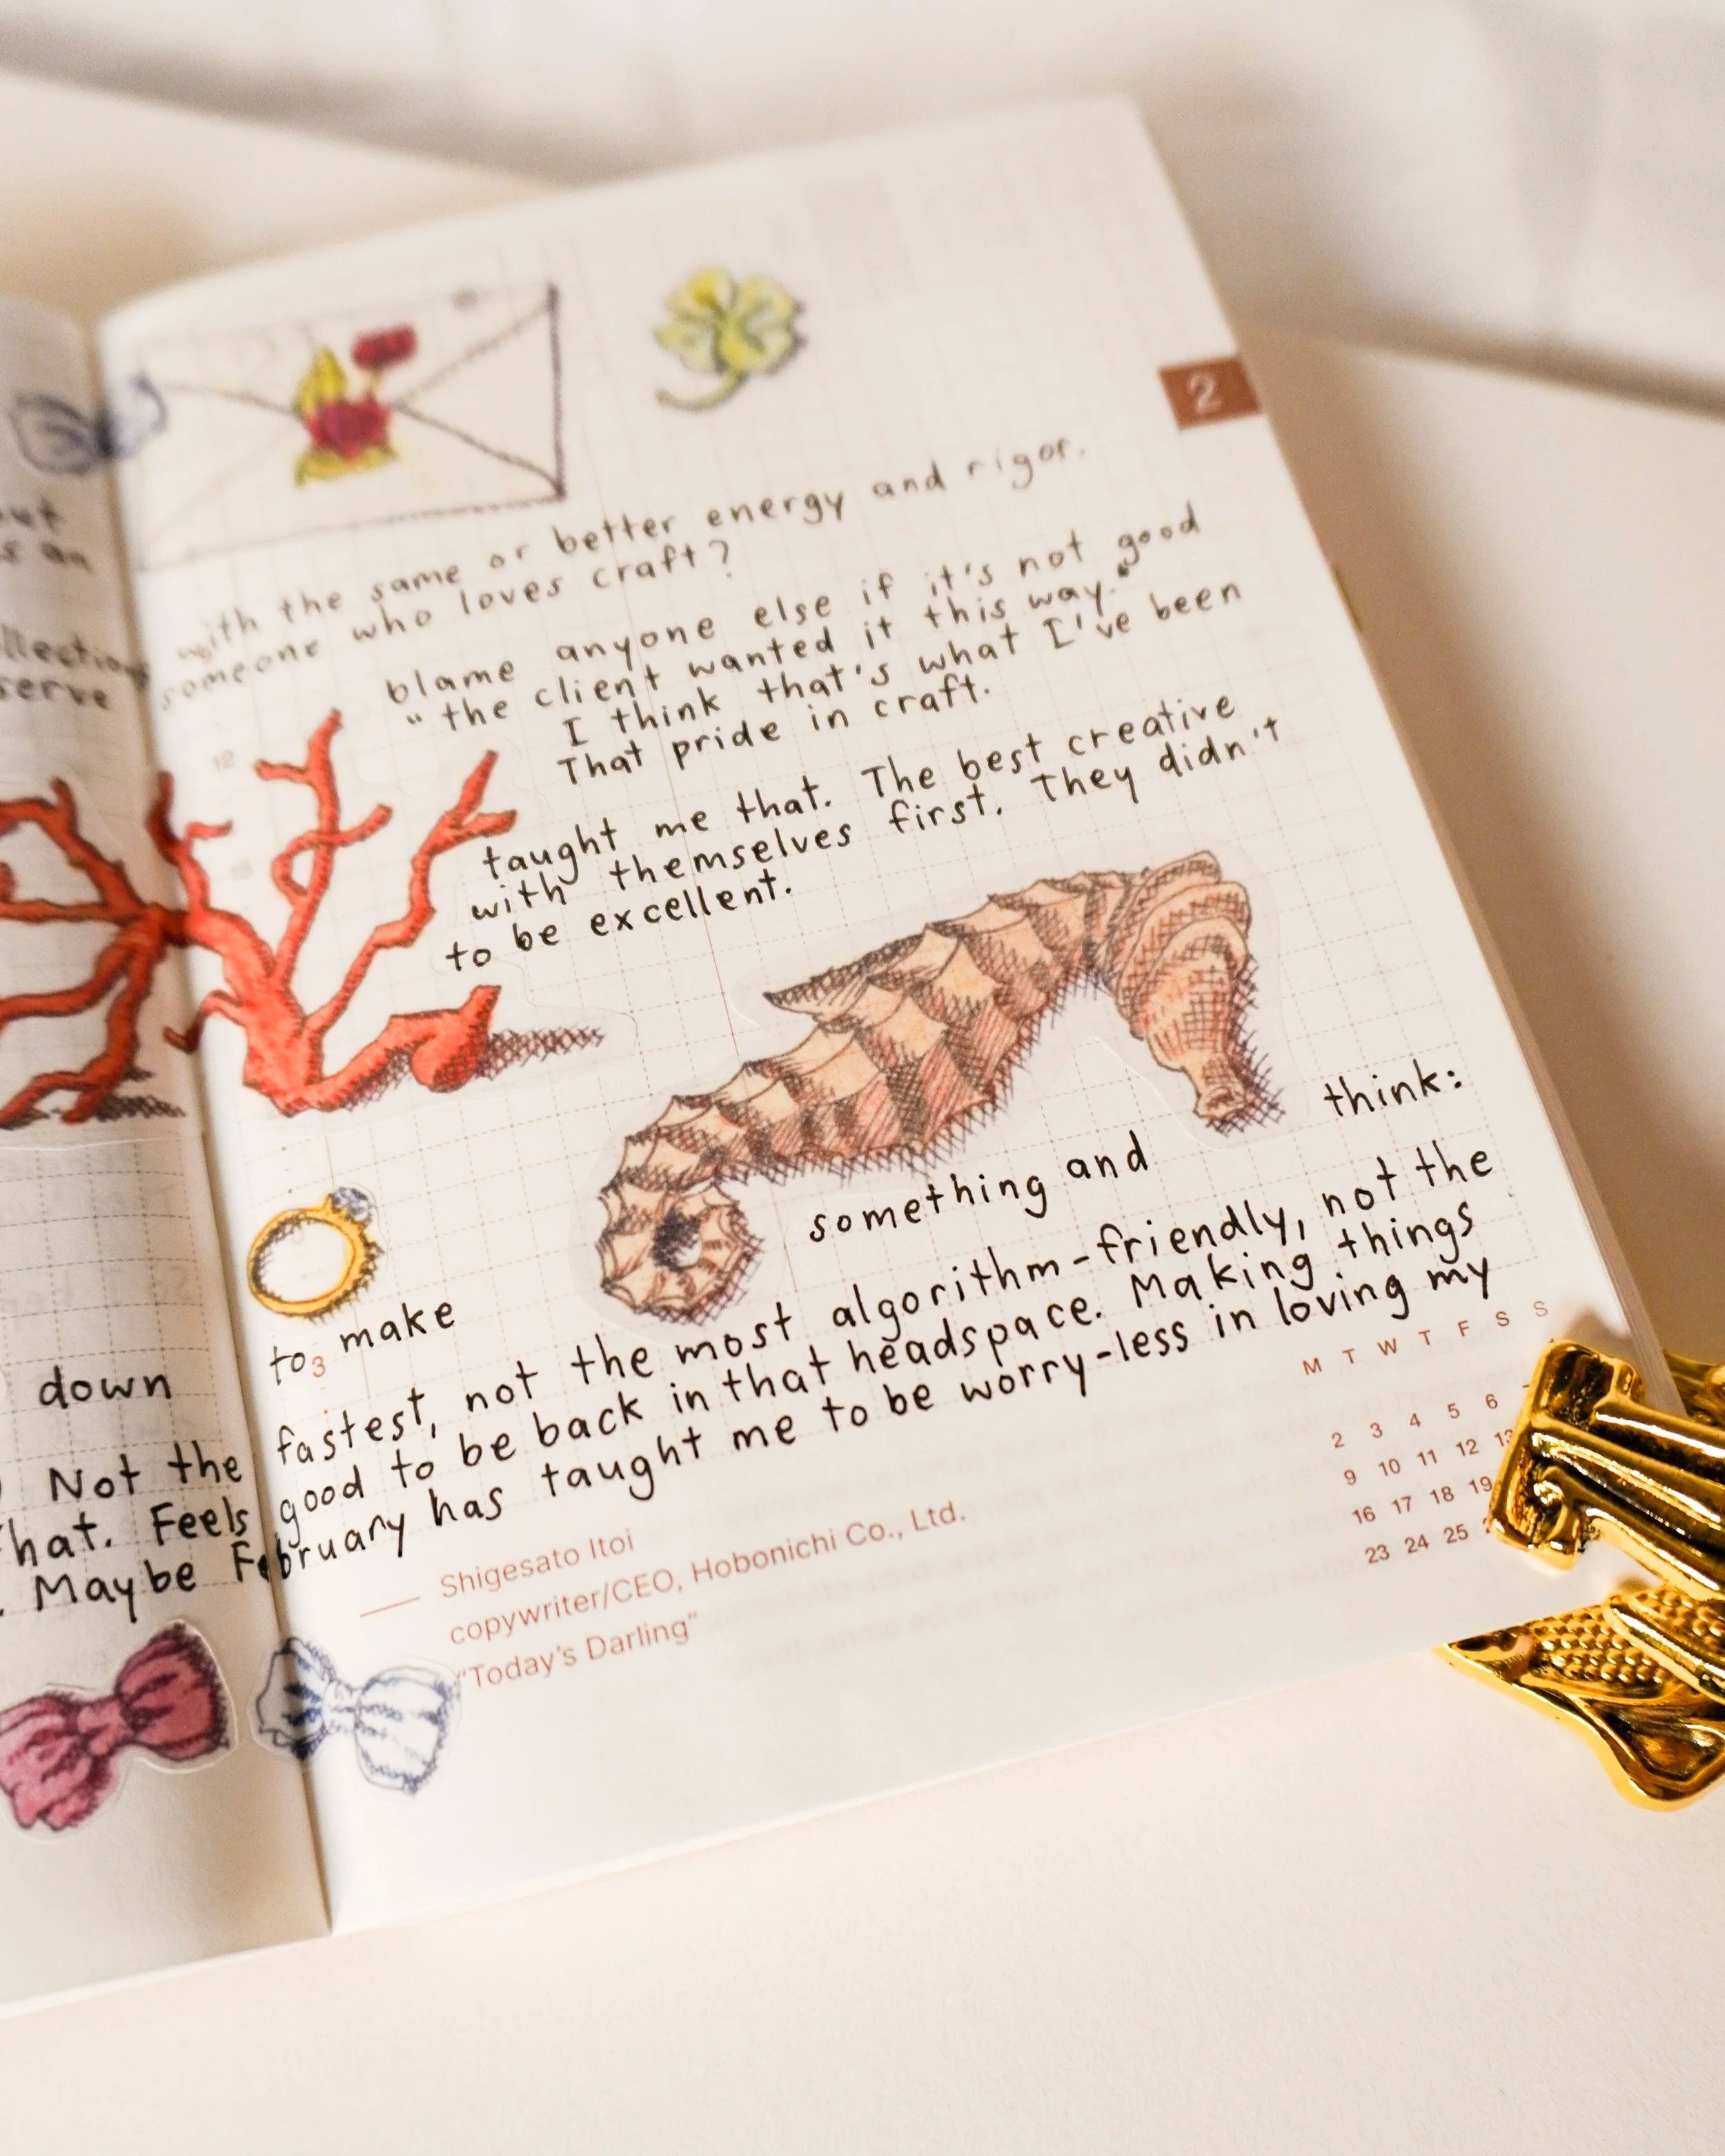 2
with the same or better energy and rigor.
someone who loves craft?
blame anyone else if it's not good
"the client wanted it this way."
I think that's what I've been
That pride in craft.
taught me that. The best creative
with themselves first. They didn't
to be excellent.
think:
something and
to make
3
down
fastest, not the most algorithm-friendly, not the
Not the good to be back in that headspace. Making things
hat. Feels
. Maybe February has taught me to be worry-less in loving my
M T W T F S S
2 3 4 5 6
9 10 11 12 13
16 17 18 19
23 24 25
Shigesato Itoi
copywriter/CEO, Hobonichi Co., Ltd.
"Today's Darling"